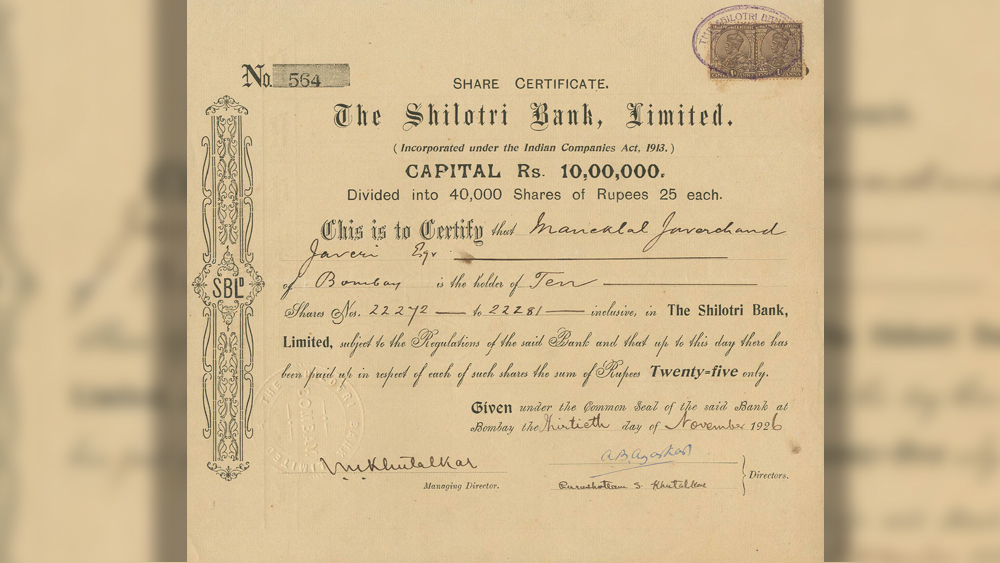 THE SHILOTRI BANK
No. 564
SHARE CERTIFICATE.
The Shilotri Bank, Limited.
(Incorporated under the Indian Companies Act, 1913.)
CAPITAL Rs. 10,00,000.
Divided into 40,000 Shares of Rupees 25 each.
This is to Certify that Maneklal Javerchand
Javeri Esqr
of Bombay is the holder of Ten
SBLD
Shares Nos. 22272 to 22281 inclusive, in The Shilotri Bank,
Limited, subject to the Regulations of the said Bank and that up to this day there has
been paid up in respect of each of such shares the sum of Rupees Twenty-five only.
Given under the Common Seal of the said Bank at
Bombay the Thirtieth day of November 1926
Khutalkar
Managing Director.
Purushotam S. Khutalkar
Directors.